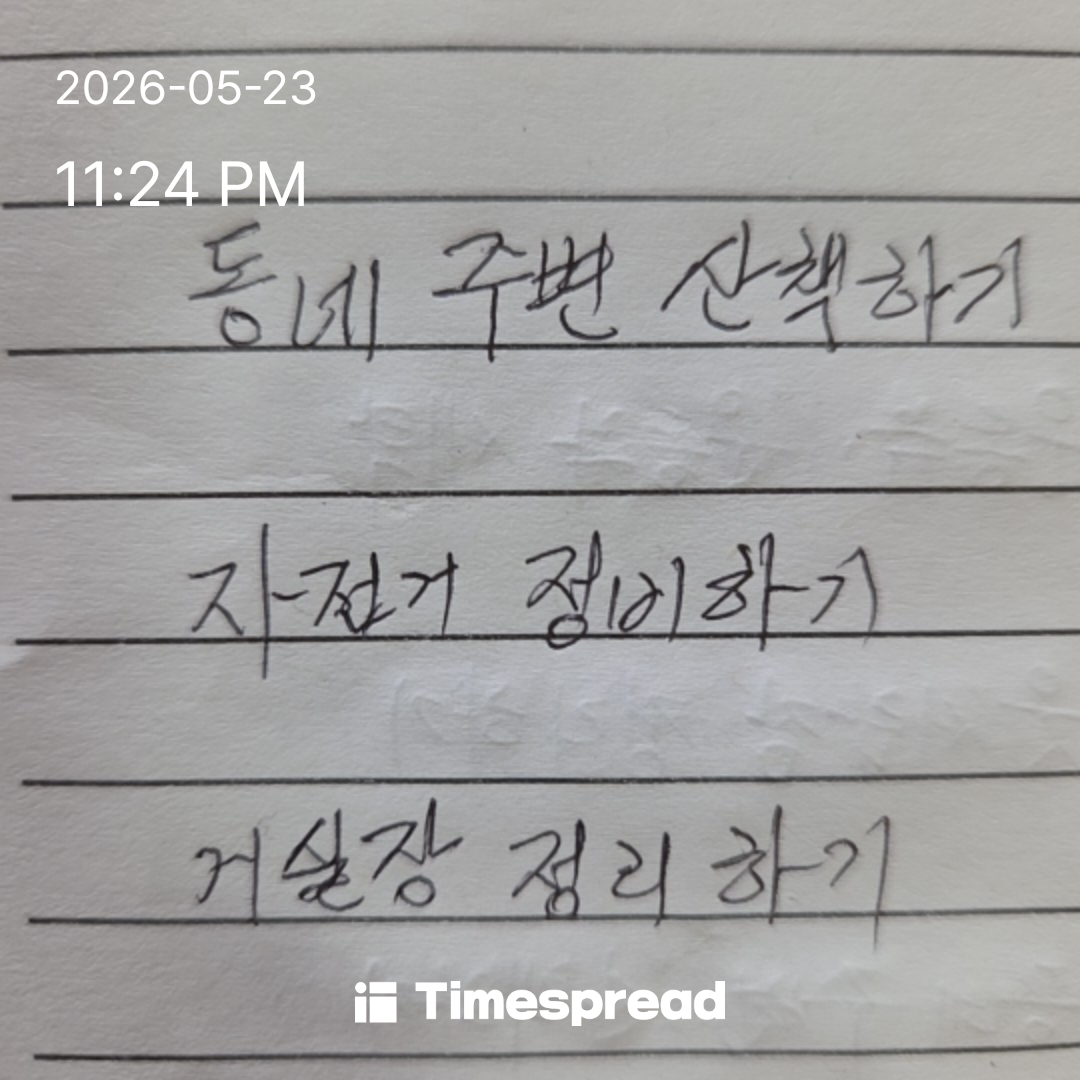 2026-05-23
11:24 PM
동네 주변 산책하기
자전거 정비하기
거실장 정리하기
Timespread